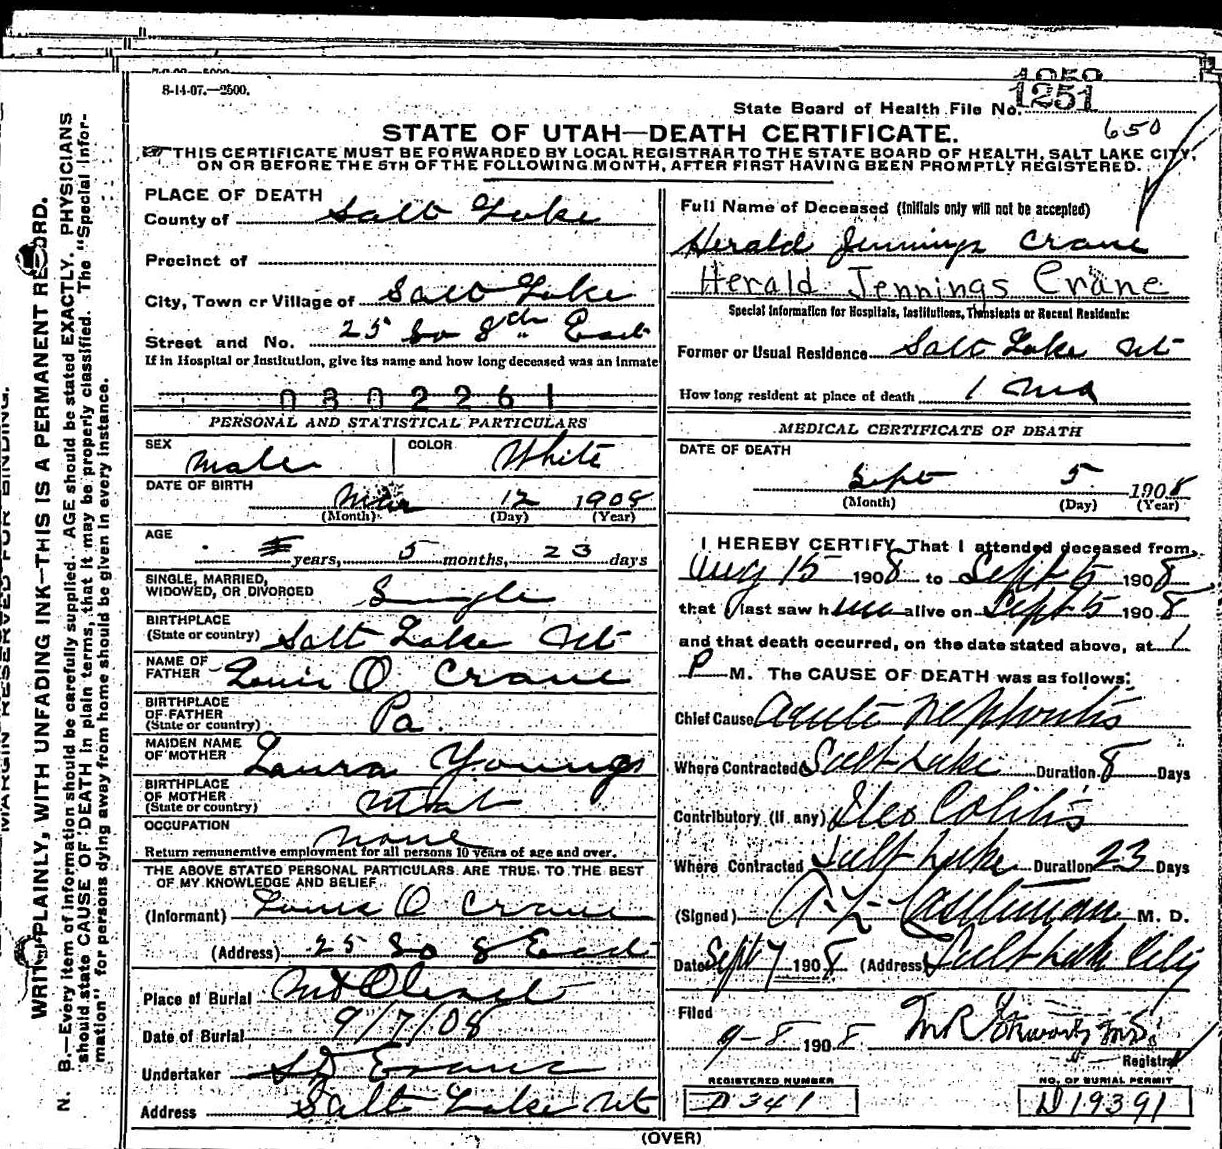 8-14-07.—2500.
State Board of Health File No. 1251
650
STATE OF UTAH—DEATH CERTIFICATE.
THIS CERTIFICATE MUST BE FORWARDED BY LOCAL REGISTRAR TO THE STATE BOARD OF HEALTH, SALT LAKE CITY,
ON OR BEFORE THE 5TH OF THE FOLLOWING MONTH, AFTER FIRST HAVING BEEN PROMPTLY REGISTERED.
MARGIN RESERVED FOR BINDING.
WRITE PLAINLY, WITH UNFADING INK—THIS IS A PERMANENT RECORD.
N. B.—Every item of information should be carefully supplied. AGE should be stated EXACTLY. PHYSICIANS
should state CAUSE OF DEATH in plain terms, that it may be properly classified. The "Special Infor-
mation" for persons dying away from home should be given in every instance.
PLACE OF DEATH
County of Salt Lake
Precinct of
City, Town or Village of Salt Lake
Street and No. 25 So 8th East
If in Hospital or Institution, give its name and how long deceased was an inmate
0302261
PERSONAL AND STATISTICAL PARTICULARS
SEX Male COLOR White
DATE OF BIRTH
Mar 12 1908
(Month) (Day) (Year)
AGE
years, 5 months, 23 days
SINGLE, MARRIED,
WIDOWED, OR DIVORCED Single
BIRTHPLACE
(State or country) Salt Lake Ut
NAME OF
FATHER Louis O Crane
BIRTHPLACE
OF FATHER
(State or country) Pa.
MAIDEN NAME
OF MOTHER Laura Young
BIRTHPLACE
OF MOTHER
(State or country) Utah
OCCUPATION None
Return remunerative employment for all persons 10 years of age and over.
THE ABOVE STATED PERSONAL PARTICULARS ARE TRUE TO THE BEST
OF MY KNOWLEDGE AND BELIEF
(Informant) Louis O Crane
(Address) 25 So 8 East
Place of Burial Mt Olivet
Date of Burial 9/7/08
Undertaker SD Evans
Address Salt Lake Ut
Full Name of Deceased (Initials only will not be accepted)
Herald Jennings Crane
Herald Jennings Crane
Special Information for Hospitals, Institutions, Transients or Recent Residents:
Former or Usual Residence Salt Lake Ut
How long resident at place of death 1 mo
MEDICAL CERTIFICATE OF DEATH
DATE OF DEATH
Sept 5 1908
(Month) (Day) (Year)
I HEREBY CERTIFY, That I attended deceased from
Aug 15 1908 to Sept 5 1908
that I last saw him alive on Sept 5 1908
and that death occurred, on the date stated above, at 1
P M. The CAUSE OF DEATH was as follows:
Chief Cause Acute Nephritis
Where Contracted Salt Lake Duration 8 Days
Contributory (if any) Ileo Colitis
Where Contracted Salt Lake Duration 23 Days
(Signed) M. D.
Date Sept 7 1908 (Address) Salt Lake City
Filed
9-8- 1908 M R
Registrar
REGISTERED NUMBER
D 341
NO. OF BURIAL PERMIT
D 19391
(OVER)